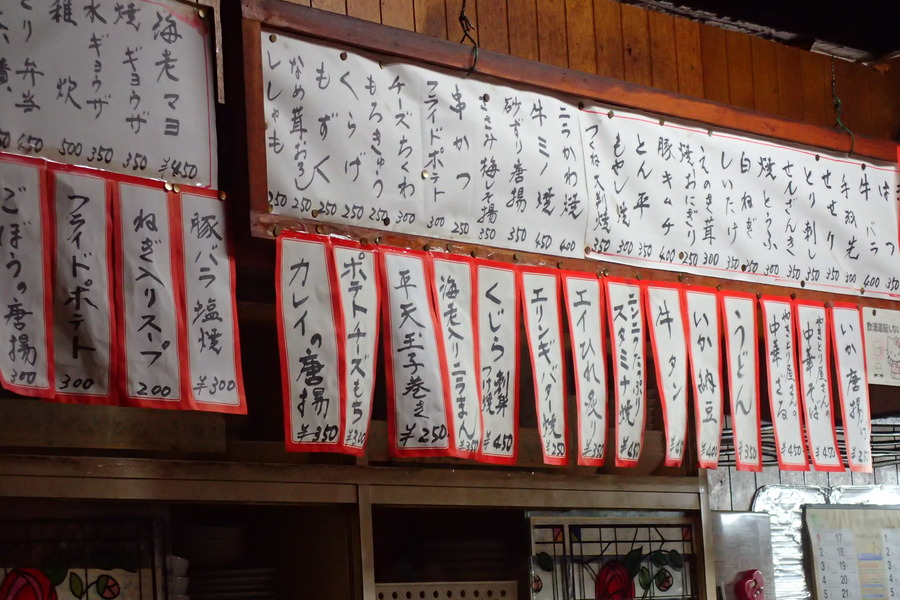 海老マヨ ¥450
焼ギョウザ 350
水ギョウザ 350
雑炊 500
とり弁当 450
つくね大判焼 350
もやし焼 300
とん平 350
豚キムチ
焼おにぎり
えのき茸
しいたけ
白ねぎ
焼とうふ
せんざんき
とり刺し
せせり
手羽先
牛バラ
ニラかわ焼 400
牛ミノ焼 450
砂ずり唐揚 350
ささみ梅しそ揚
串かつ 250
フライドポテト
チーズちくわ 300
もろきゅう 250
くらげ 250
もずく 250
なめ茸おろし 250
ししゃも 250
豚バラ塩焼 ¥300
ねぎ入りスープ 200
フライドポテト 300
ごぼうの唐揚 300
いか唐揚
やきとり屋さんの中華そば ¥450
やきとり屋さんの中華ざる ¥450
うどん ¥350
いか納豆
牛タン
ニンニクたっぷりスタミナ焼
エイひれ炙り
エリンギバター焼
くじら 刺身 つけ焼 ¥450
海老入りニラまん
平天玉子巻き ¥250
ポテトチーズもち
カレイの唐揚 ¥350